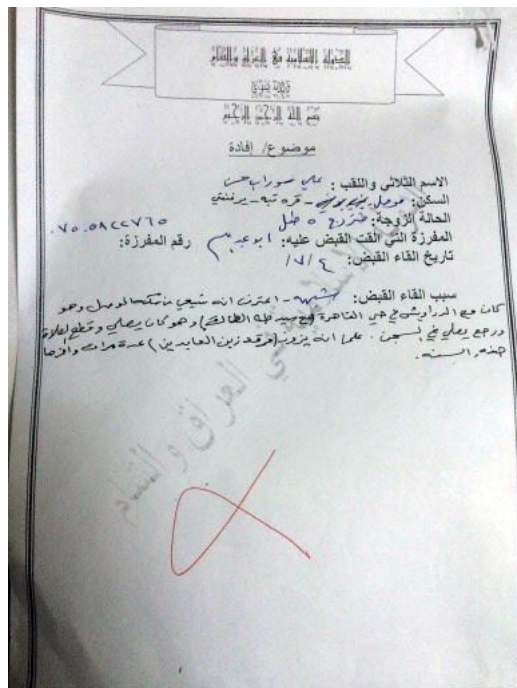 الدولة الإسلامية في العراق والشام
ولاية نينوى
بسم الله الرحمن الرحيم
موضوع/ إفادة
الاسم الثلاثي واللقب : علي سوراب حسن
السكن: موصل - قره تبه -
الحالة الزوجة: متزوج ٥ طفل ٠٧٥٠٥٨٢٢٧٦٥
المفرزة التي ألقت القبض عليه: ابو رقم المفرزة:
تاريخ القاء القبض: ٤ /٧ /١
سبب القاء القبض: شبهه - اعترف انه شيعي من سكنه الموصل وهو
كان مع الدراويش في حي القاهرة مع سيد طه وهو كان يصلي و قطع الصلاة
ورجع يصلي في السجن . علماً انه يزور (مرقد زين العابدين) عدة مرات وآخرها
هذه السنه.
في العراق و الشام